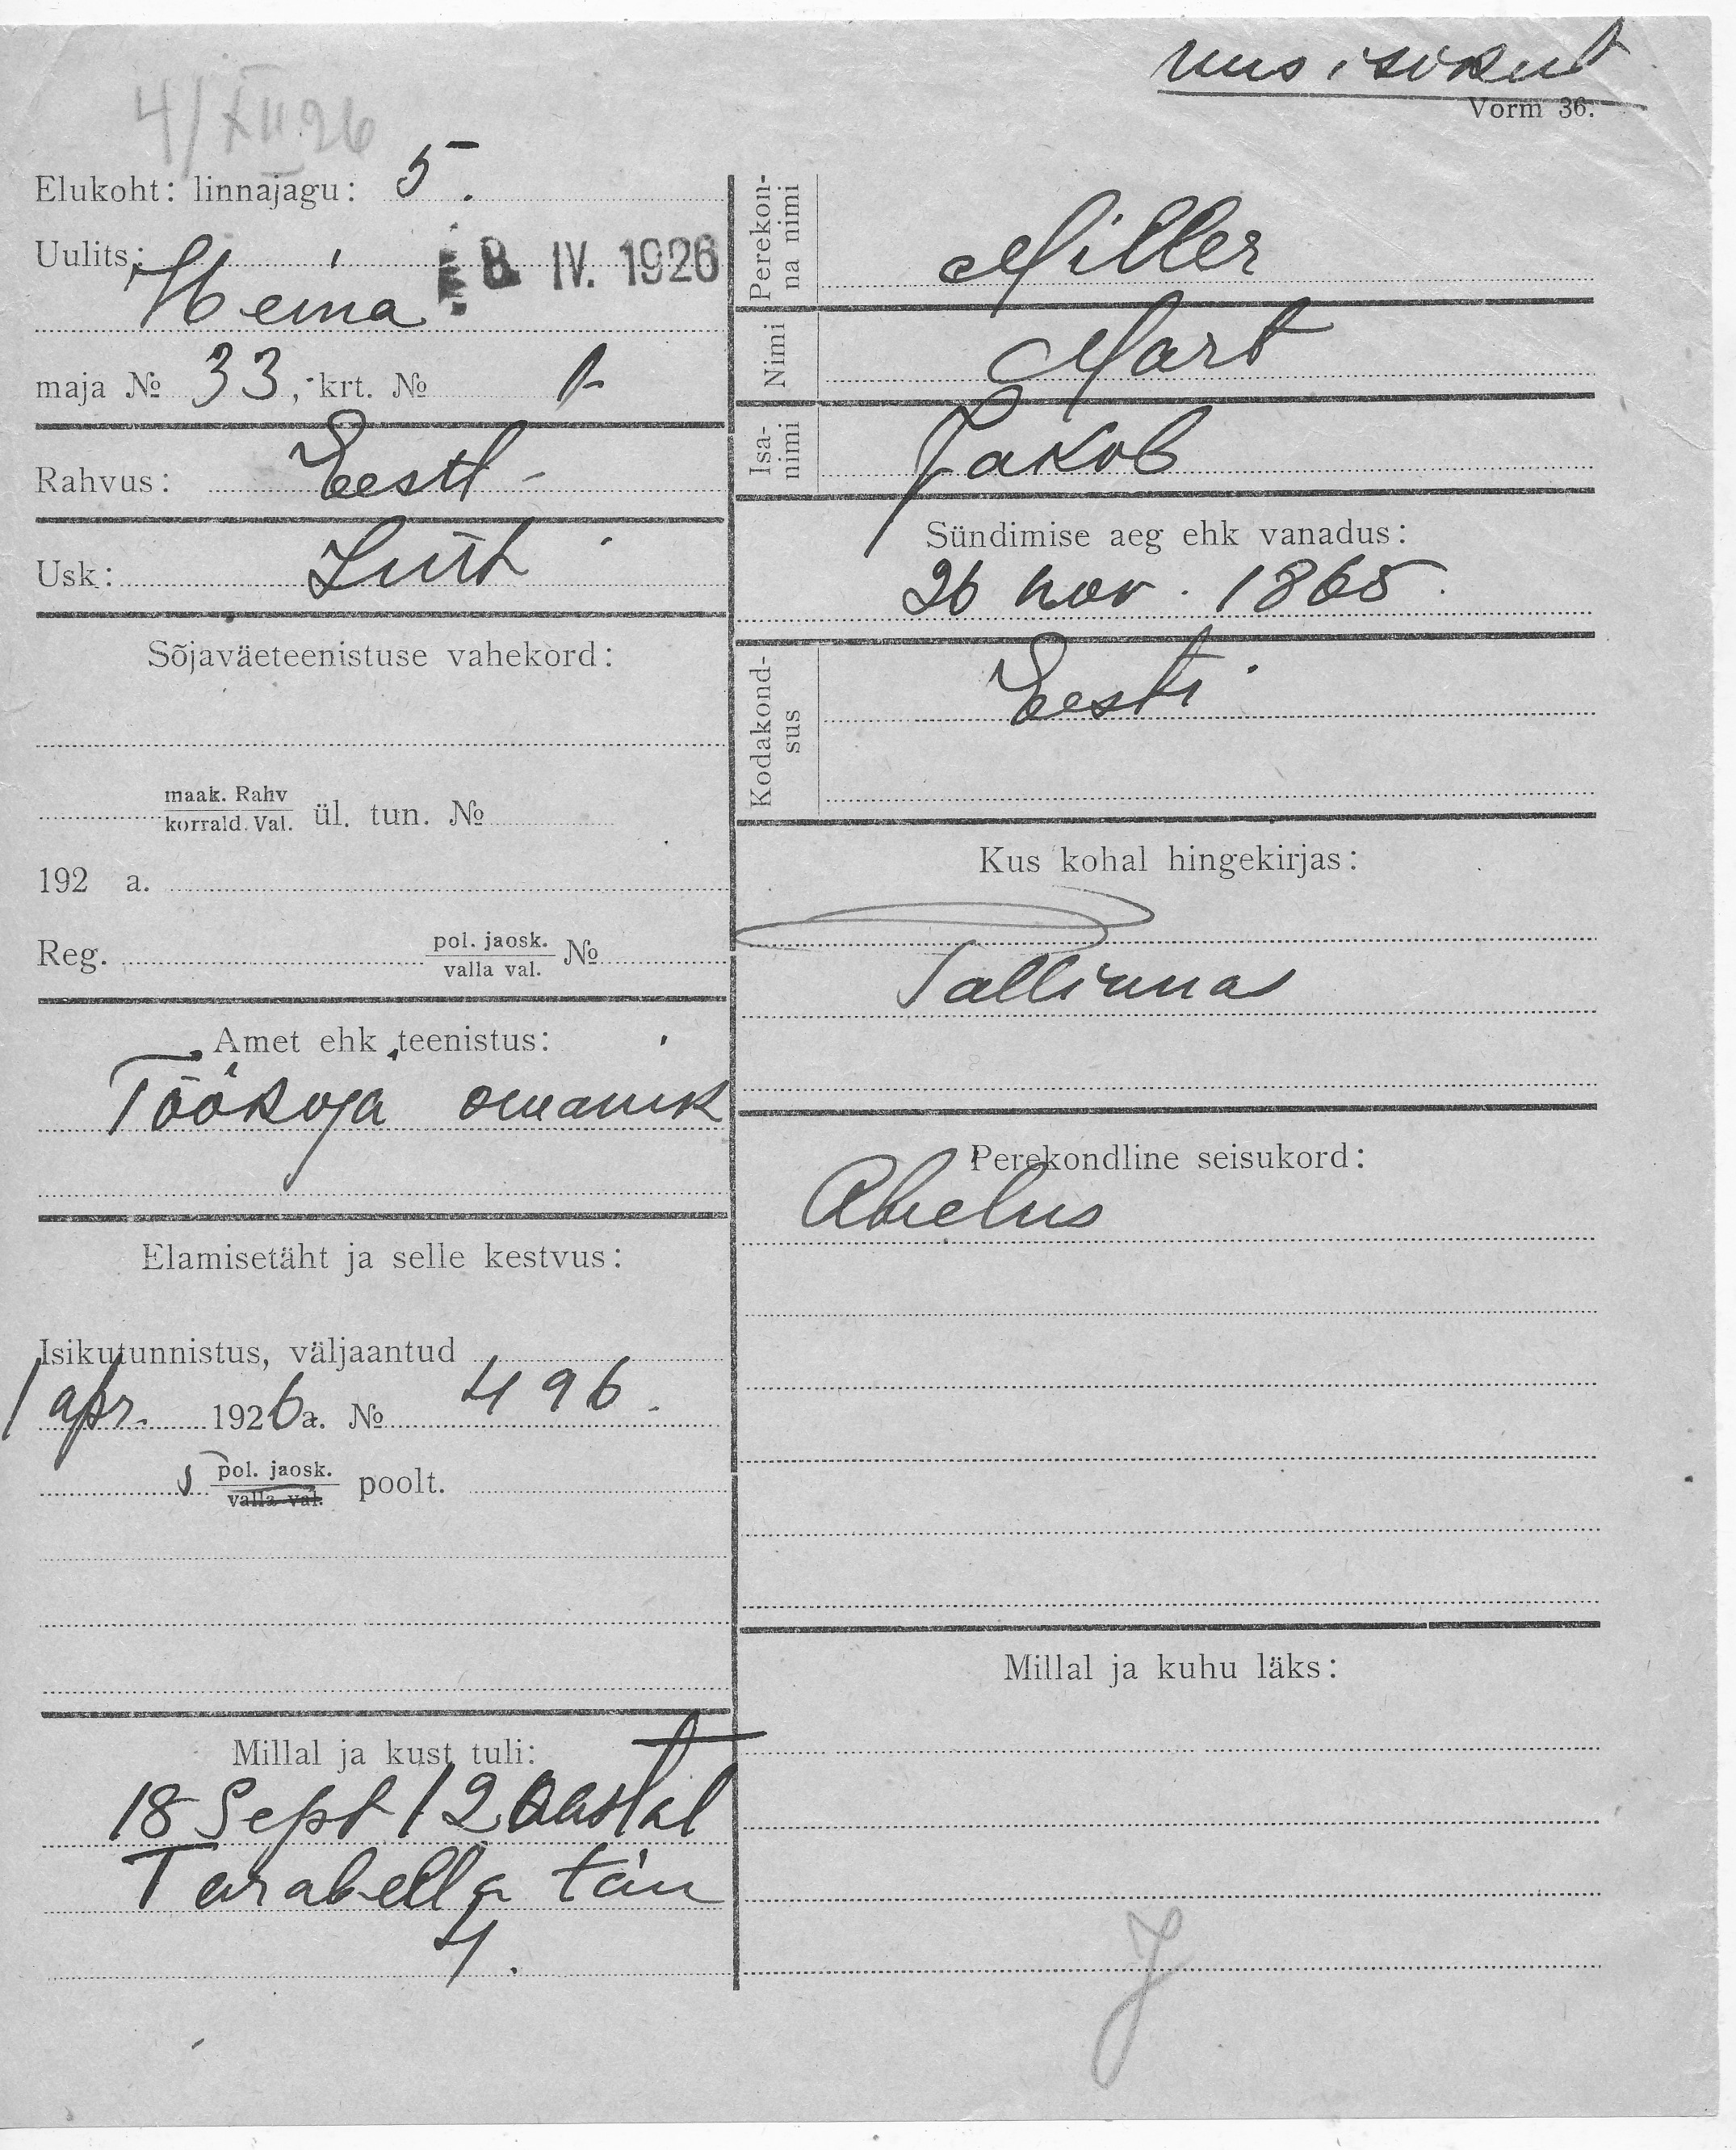 uus isikut
Vorm 36.
4/XII 26
Elukoht: linnajagu: 5.
Uulits:
8. IV. 1926
Heina
maja № 33, krt. № 1
Rahvus: Eesti
Usk: Luth
Sõjaväeteenistuse vahekord:
maak. Rahv
korrald. Val. ül. tun. №
192 a.
Reg. pol. jaosk.
valla val. №
Amet ehk teenistus:
Töökoja omanik
Elamisetäht ja selle kestvus:
Isikutunnistus, väljaantud
1 apr. 1926 a. № 496.
5 pol. jaosk.
valla val. poolt.
Millal ja kust tuli:
18 Sept 12 aastal
Tarabella tän
4.
Perekon-
na nimi
Miller
Nimi
Mart
Isa-
nimi
Jakob
Sündimise aeg ehk vanadus:
26 nov. 1865.
Kodakond-
sus
Eesti
Kus kohal hingekirjas:
Tallinnas
Perekondline seisukord:
Abielus
Millal ja kuhu läks:
J